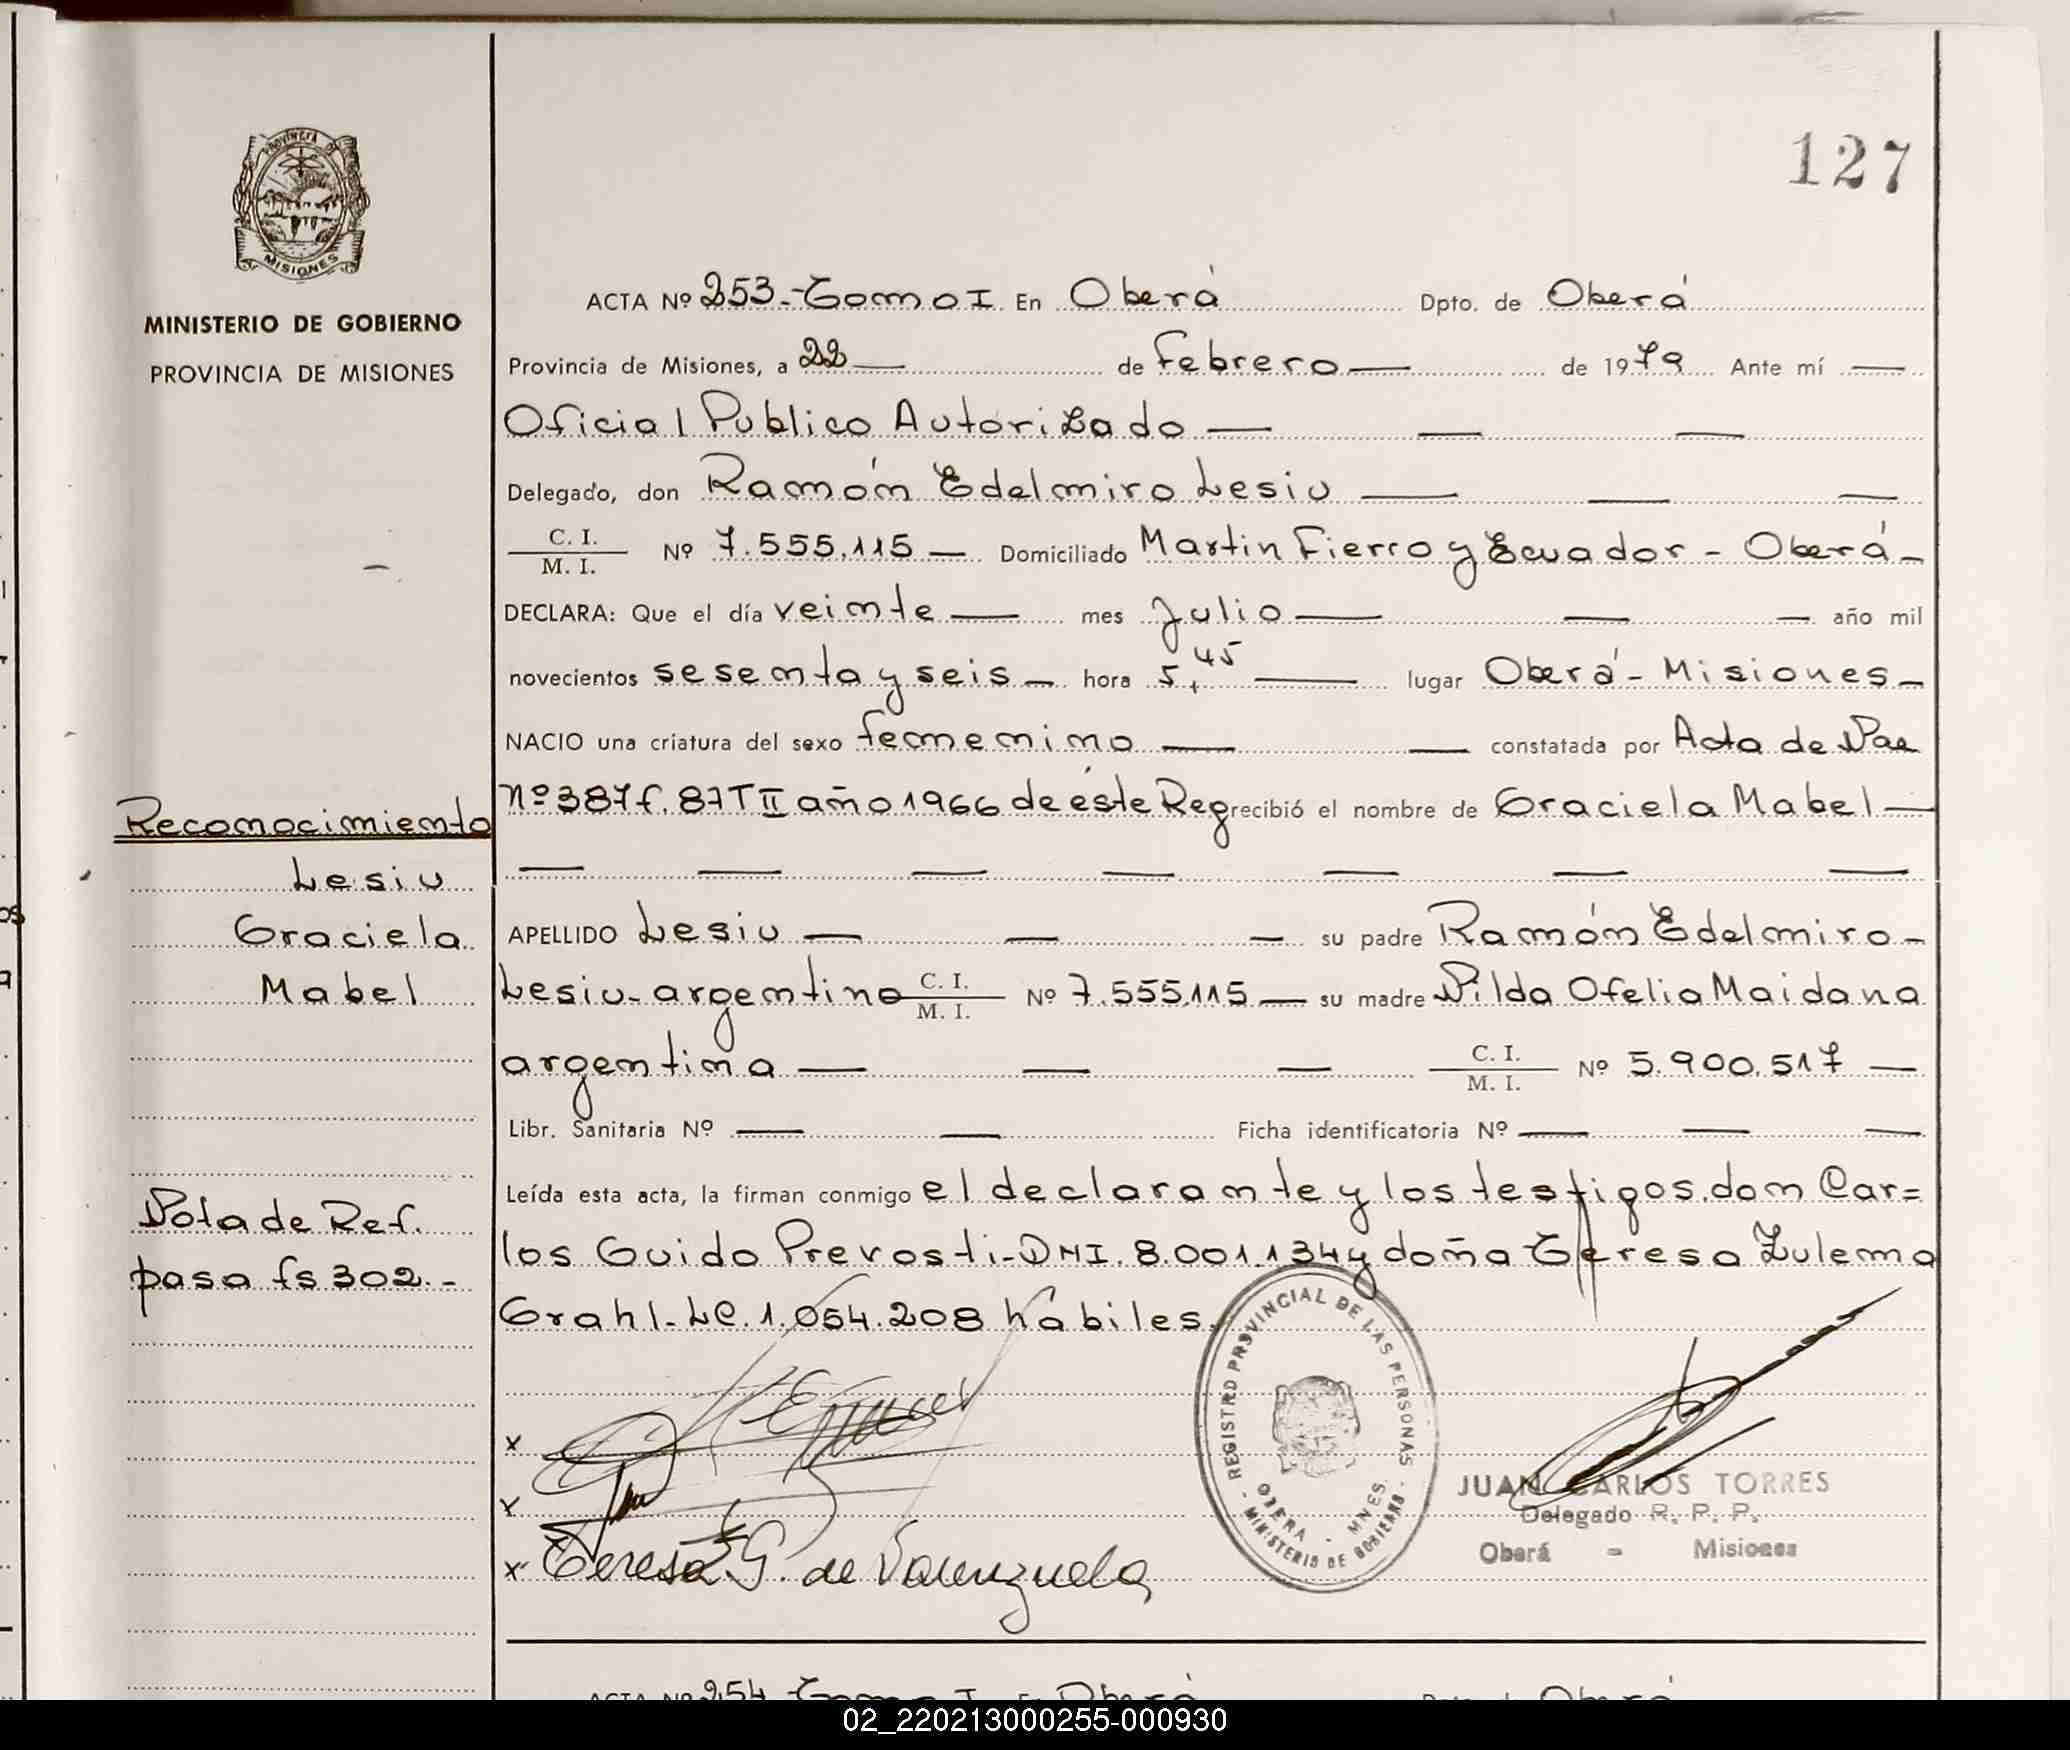 127
PROVINCIA DE
MISIONES
MINISTERIO DE GOBIERNO
PROVINCIA DE MISIONES
ACTA Nº 253.- Tomo I. En Oberá Dpto. de Oberá
Provincia de Misiones, a 22 — de Febrero — de 1979 Ante mí —
Oficial Publico Autorizado — — —
Delegado, don Ramón Edelmiro Lesiv — — —
C. I.
M. I. Nº 7.555.115 — Domiciliado Martin Fierro y Ecuador - Oberá -
DECLARA: Que el día veinte — mes Julio — — — año mil
novecientos sesenta y seis — hora 5,45 — lugar Oberá - Misiones -
NACIO una criatura del sexo femenino — — constatada por Acta de Nac
Nº 387 f. 87 T II año 1966 de éste Reg recibió el nombre de Graciela Mabel —
— — — — — — —
APELLIDO Lesiv — — — su padre Ramón Edelmiro -
Lesiv - argentino — C. I.
M. I. Nº 7.555.115 — su madre Nilda Ofelia Maidana
argentina — — — C. I.
M. I. Nº 5.900.517 —
Libr. Sanitaria Nº — — Ficha identificatoria Nº — — —
Leída esta acta, la firman conmigo el declarante y los testigos, don Car=
los Guido Prevosti - DNI. 8.001.134 y doña Teresa Zulema
Grahl - LC. 1.054.208 hábiles.
Reconocimiento
Lesiv
Graciela
Mabel
Nota de Ref.
pasa fs 302.-
x
x
x Teresa G. de Valenzuela
- REGISTRO PROVINCIAL DE LAS PERSONAS -
OBERA - MNES.
MINISTERIO DE GOBIERNO
JUAN CARLOS TORRES
Delegado R. P. P.
Oberá - Misiones
ACTA Nº 254 - Tomo I En Oberá Dpto. de Oberá
02_220213000255-000930